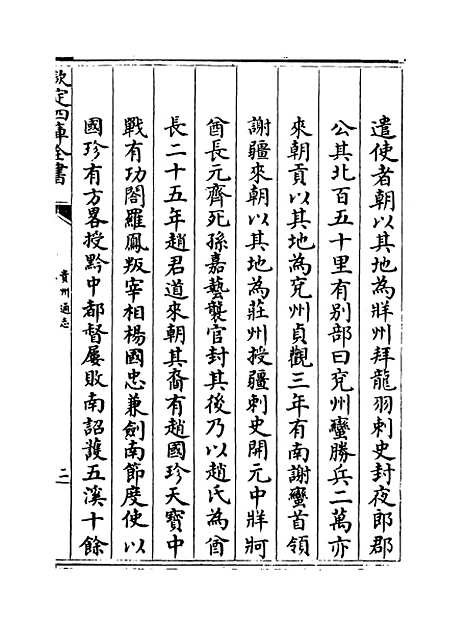 遣使者朝以其地為牂州拜龍羽刺史封夜郎郡
公其北百五十里有别部曰兖州蠻勝兵二萬亦
來朝貢以其地為兖州貞觀三年有南謝蠻首領
謝疆來朝以其地為莊州授疆刺史開元中牂牁
酋長元齊死孫嘉藝襲官封其後乃以趙氏為酋
長二十五年趙君道來朝其裔有趙國珍天寶中
戰有功閤羅鳳叛宰相楊國忠兼劍南節度使以
國珍有方畧授黔中都督屢敗南詔護五溪十餘
欽定四庫全書
貴州通志
二